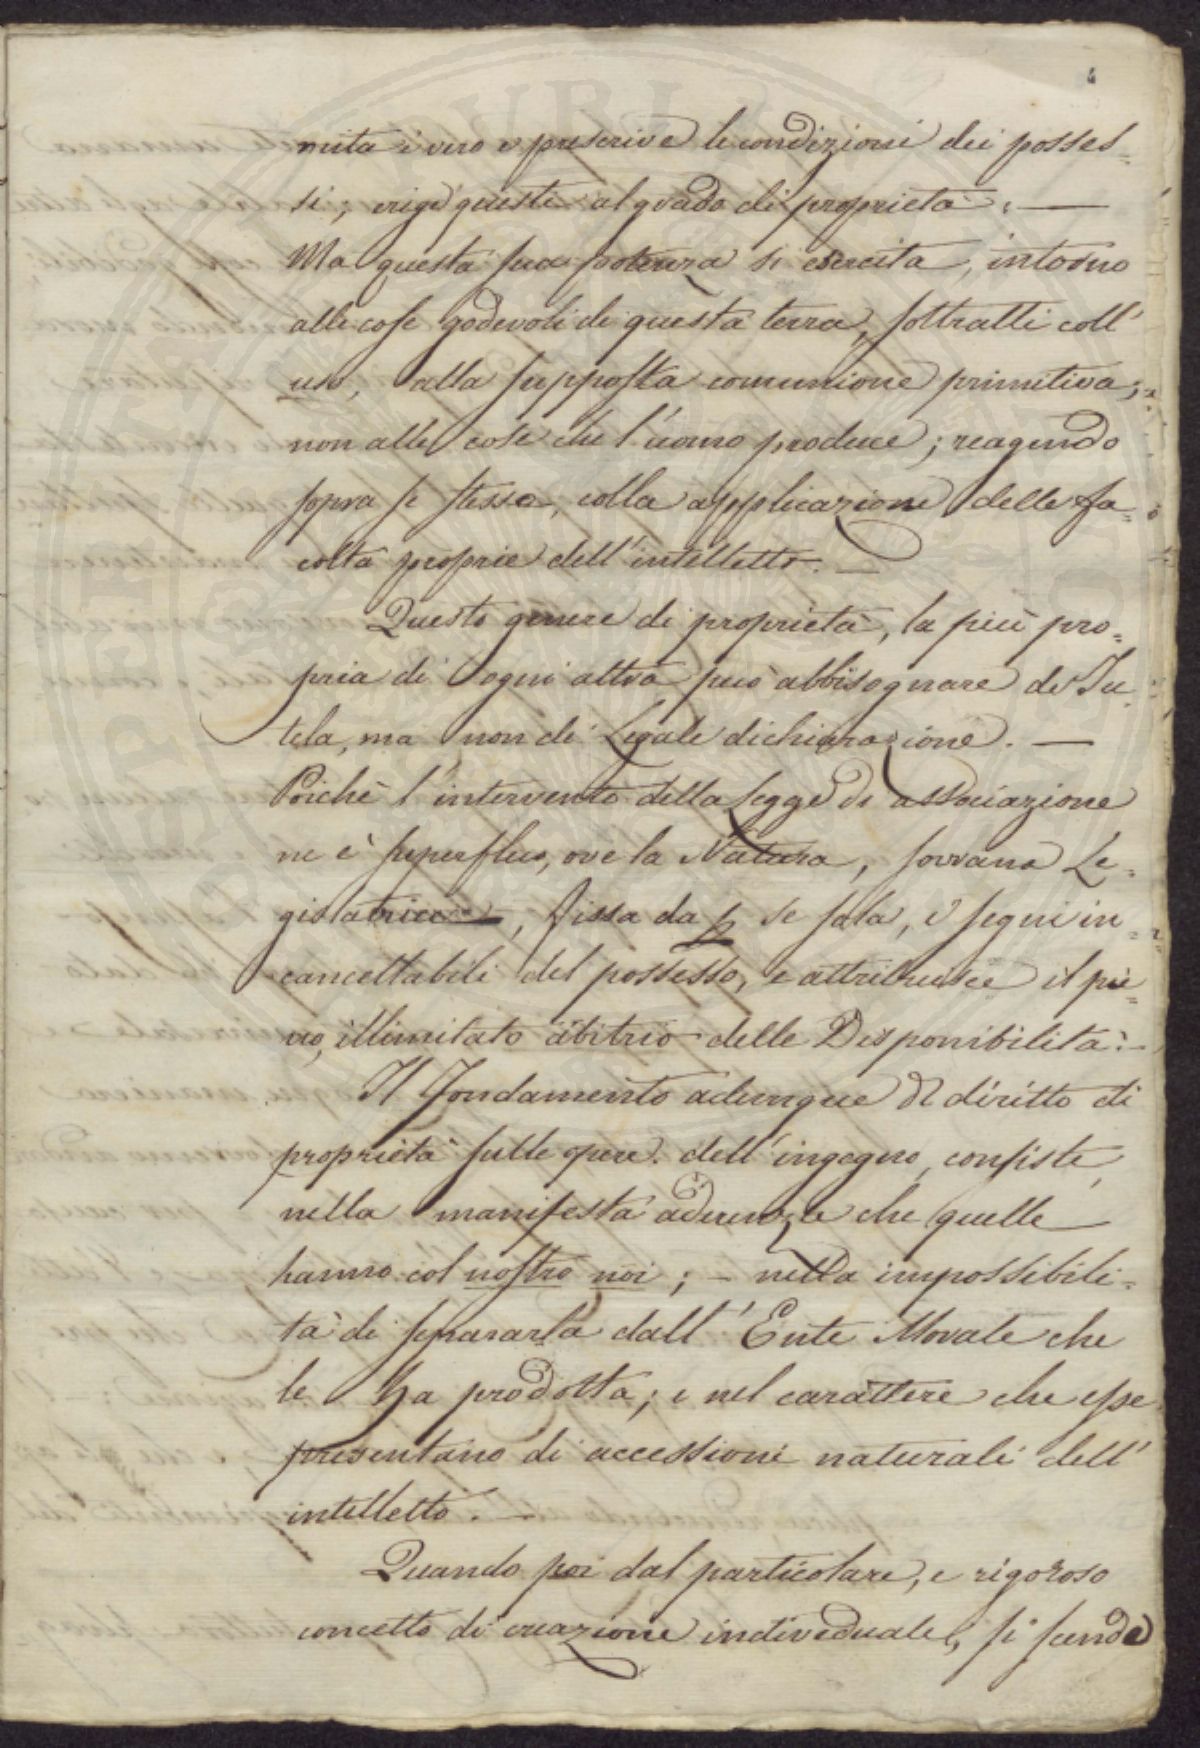 mita è vero e prescrive le condizioni dei posses=
si; erige queste al grado di proprietà. —
Ma questa sua potenza si esercita, intorno
alle cose godevoli di questa terra, sottratti coll'
uso, alla supposta comunione primitiva;
non alle cose che l'uomo produce; reagendo
sopra se stesso, colla applicazione delle fa=
coltà proprie dell'intelletto. —
Questo genere di proprietà, la più pro=
pria di ogni altra può abbisognare di Tu=
tela, ma non di Legale dichiarazione. —
Poichè l'intervento della Legge di associazione
ne è superfluo, ove la Natura, sovrana Le=
gislatrice, fissa da p se sola, i segni in=
cancellabili del possesso, e attribuisce il pie=
no, illimitato abitrio delle Disponibilità. —
Il fondamento adunque del diritto di
proprietà sulle opere dell'ingegno, consiste,
nella manifesta aderenza che quelle
hanno col nostro noi; – nella impossibili=
tà di separarla dall'Ente Morale che
le ha prodotta; e nel carattere che esse
presentano di accessioni naturali dell'
intelletto. —
Quando poi dal particolare, e rigoroso
concetto di creazione individuale, si scende